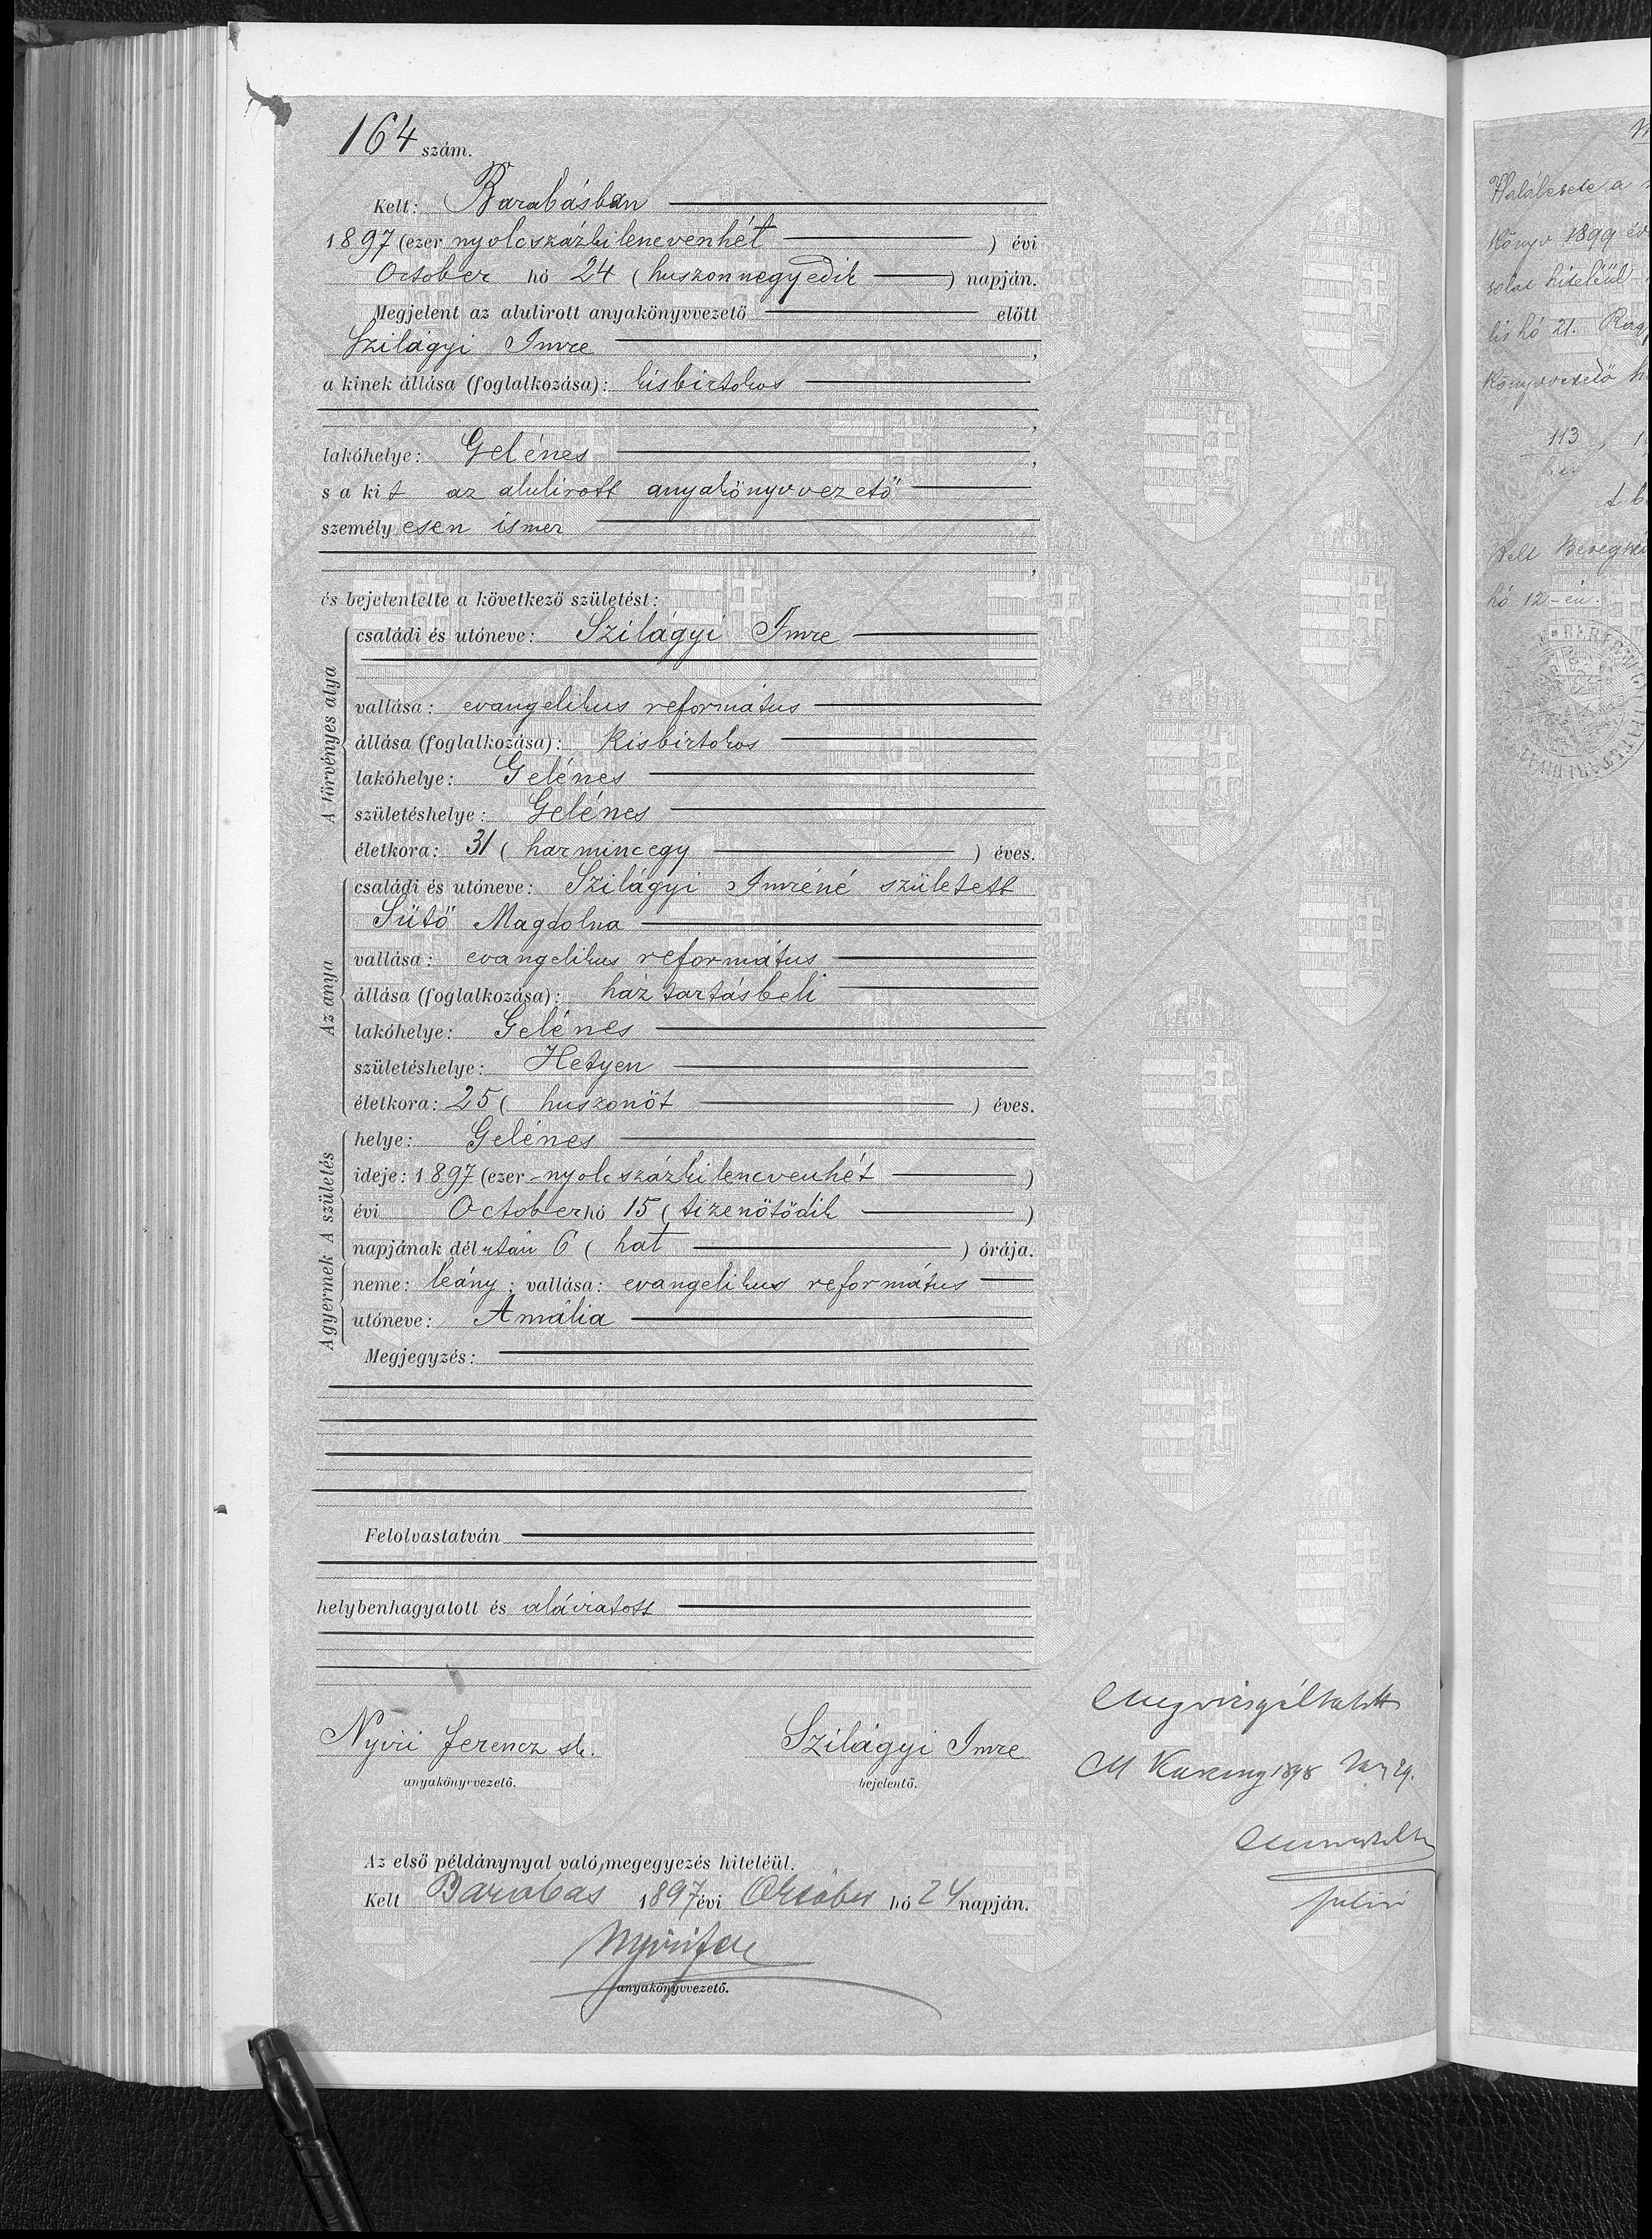 164 szám.
Kelt: Barabásban
1897 (ezer nyolcszázkilencvenhét ) évi
October hó 24 ( huszonnegyedik ) napján.
Megjelent az alulirott anyakönyvvezető előtt
Szilágyi Imre ,
a kinek állása (foglalkozása): kisbirtokos
,
lakóhelye: Gelénes ,
s a kit az alulirott anyakönyvvezető
személyesen ismer
,
és bejelentette a következő születést:
A törvényes atya
családi és utóneve: Szilágyi Imre
vallása: evangelikus református
állása (foglalkozása): Kisbirtokos
lakóhelye: Gelénes
születéshelye: Gelénes
életkora: 31 ( harmincegy ) éves.
Az anya
családi és utóneve: Szilágyi Imréné született
Sütő Magdolna
vallása: evangelikus református
állása (foglalkozása): háztartásbeli
lakóhelye: Gelénes
születéshelye: Hetyen
életkora: 25 ( huszonöt ) éves.
A születés
helye: Gelénes
ideje: 1897 (ezer-nyolcszázkilencvenhét )
évi October hó 15 ( tizenötödik )
napjának délután 6 ( hat ) órája.
A gyermek
neme: leány ; vallása: evangelikus református
utóneve: Amália
Megjegyzés:
Felolvastatván
helybenhagyatott és aláiratott
Megvizsgáltatott
Nyiri Ferencz sk. Szilágyi Imre
anyakönyvvezető. bejelentő.
M Kaszony 1898
Az első példánynyal való megegyezés hiteléül.
Kelt Barabas 1897 évi Október hó 24 napján.
Nyiri
anyakönyvvezető.
Könyv 1899 év
lis hó 21.
113
Kelt
hó 12-én.